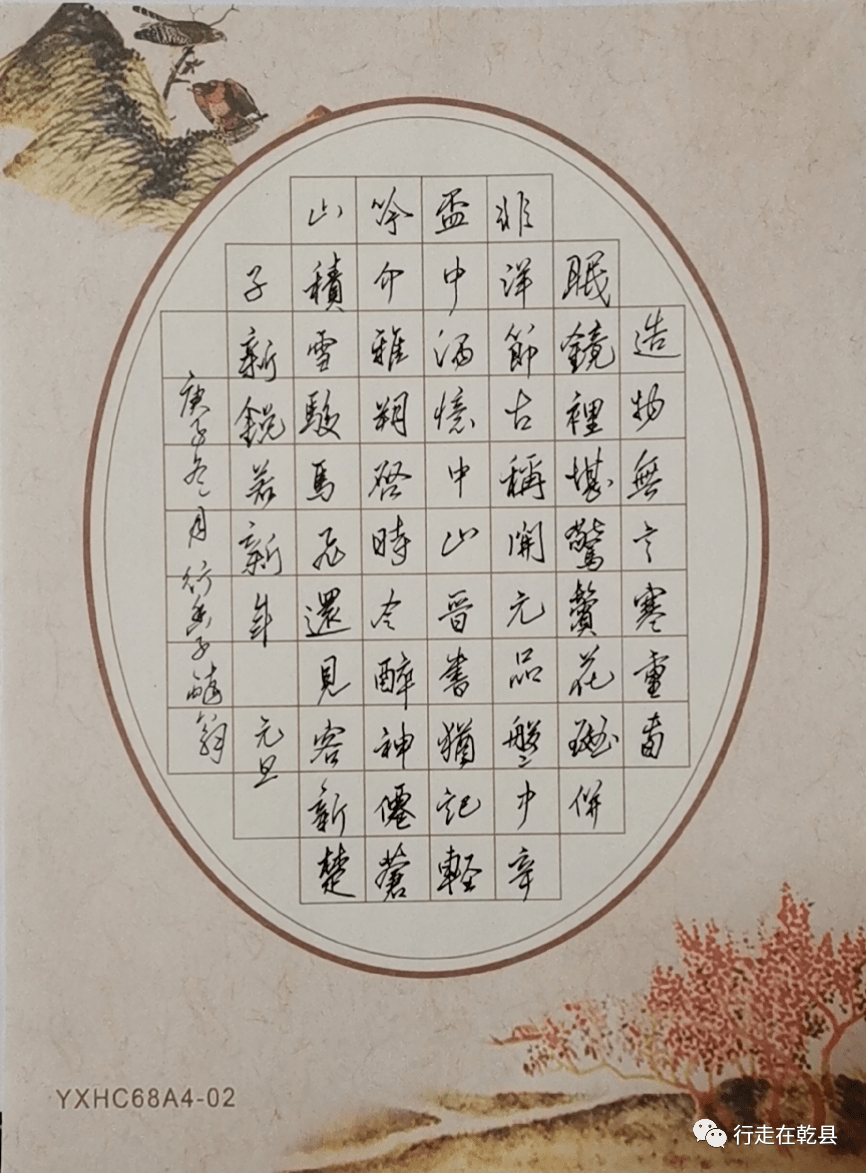 造物無言寒重
眠鏡裡堪驚鬢花斑併
非洋節古稱開元品盤中辛
盃中酒憶中山晉書猶記輕
吟介雅朔啓時令醉神僊蒼
山積雪駿馬飛還見客新楚
子新銳若新年 元旦
庚子冬月 子翁
YXHC68A4-02
行走在乾县